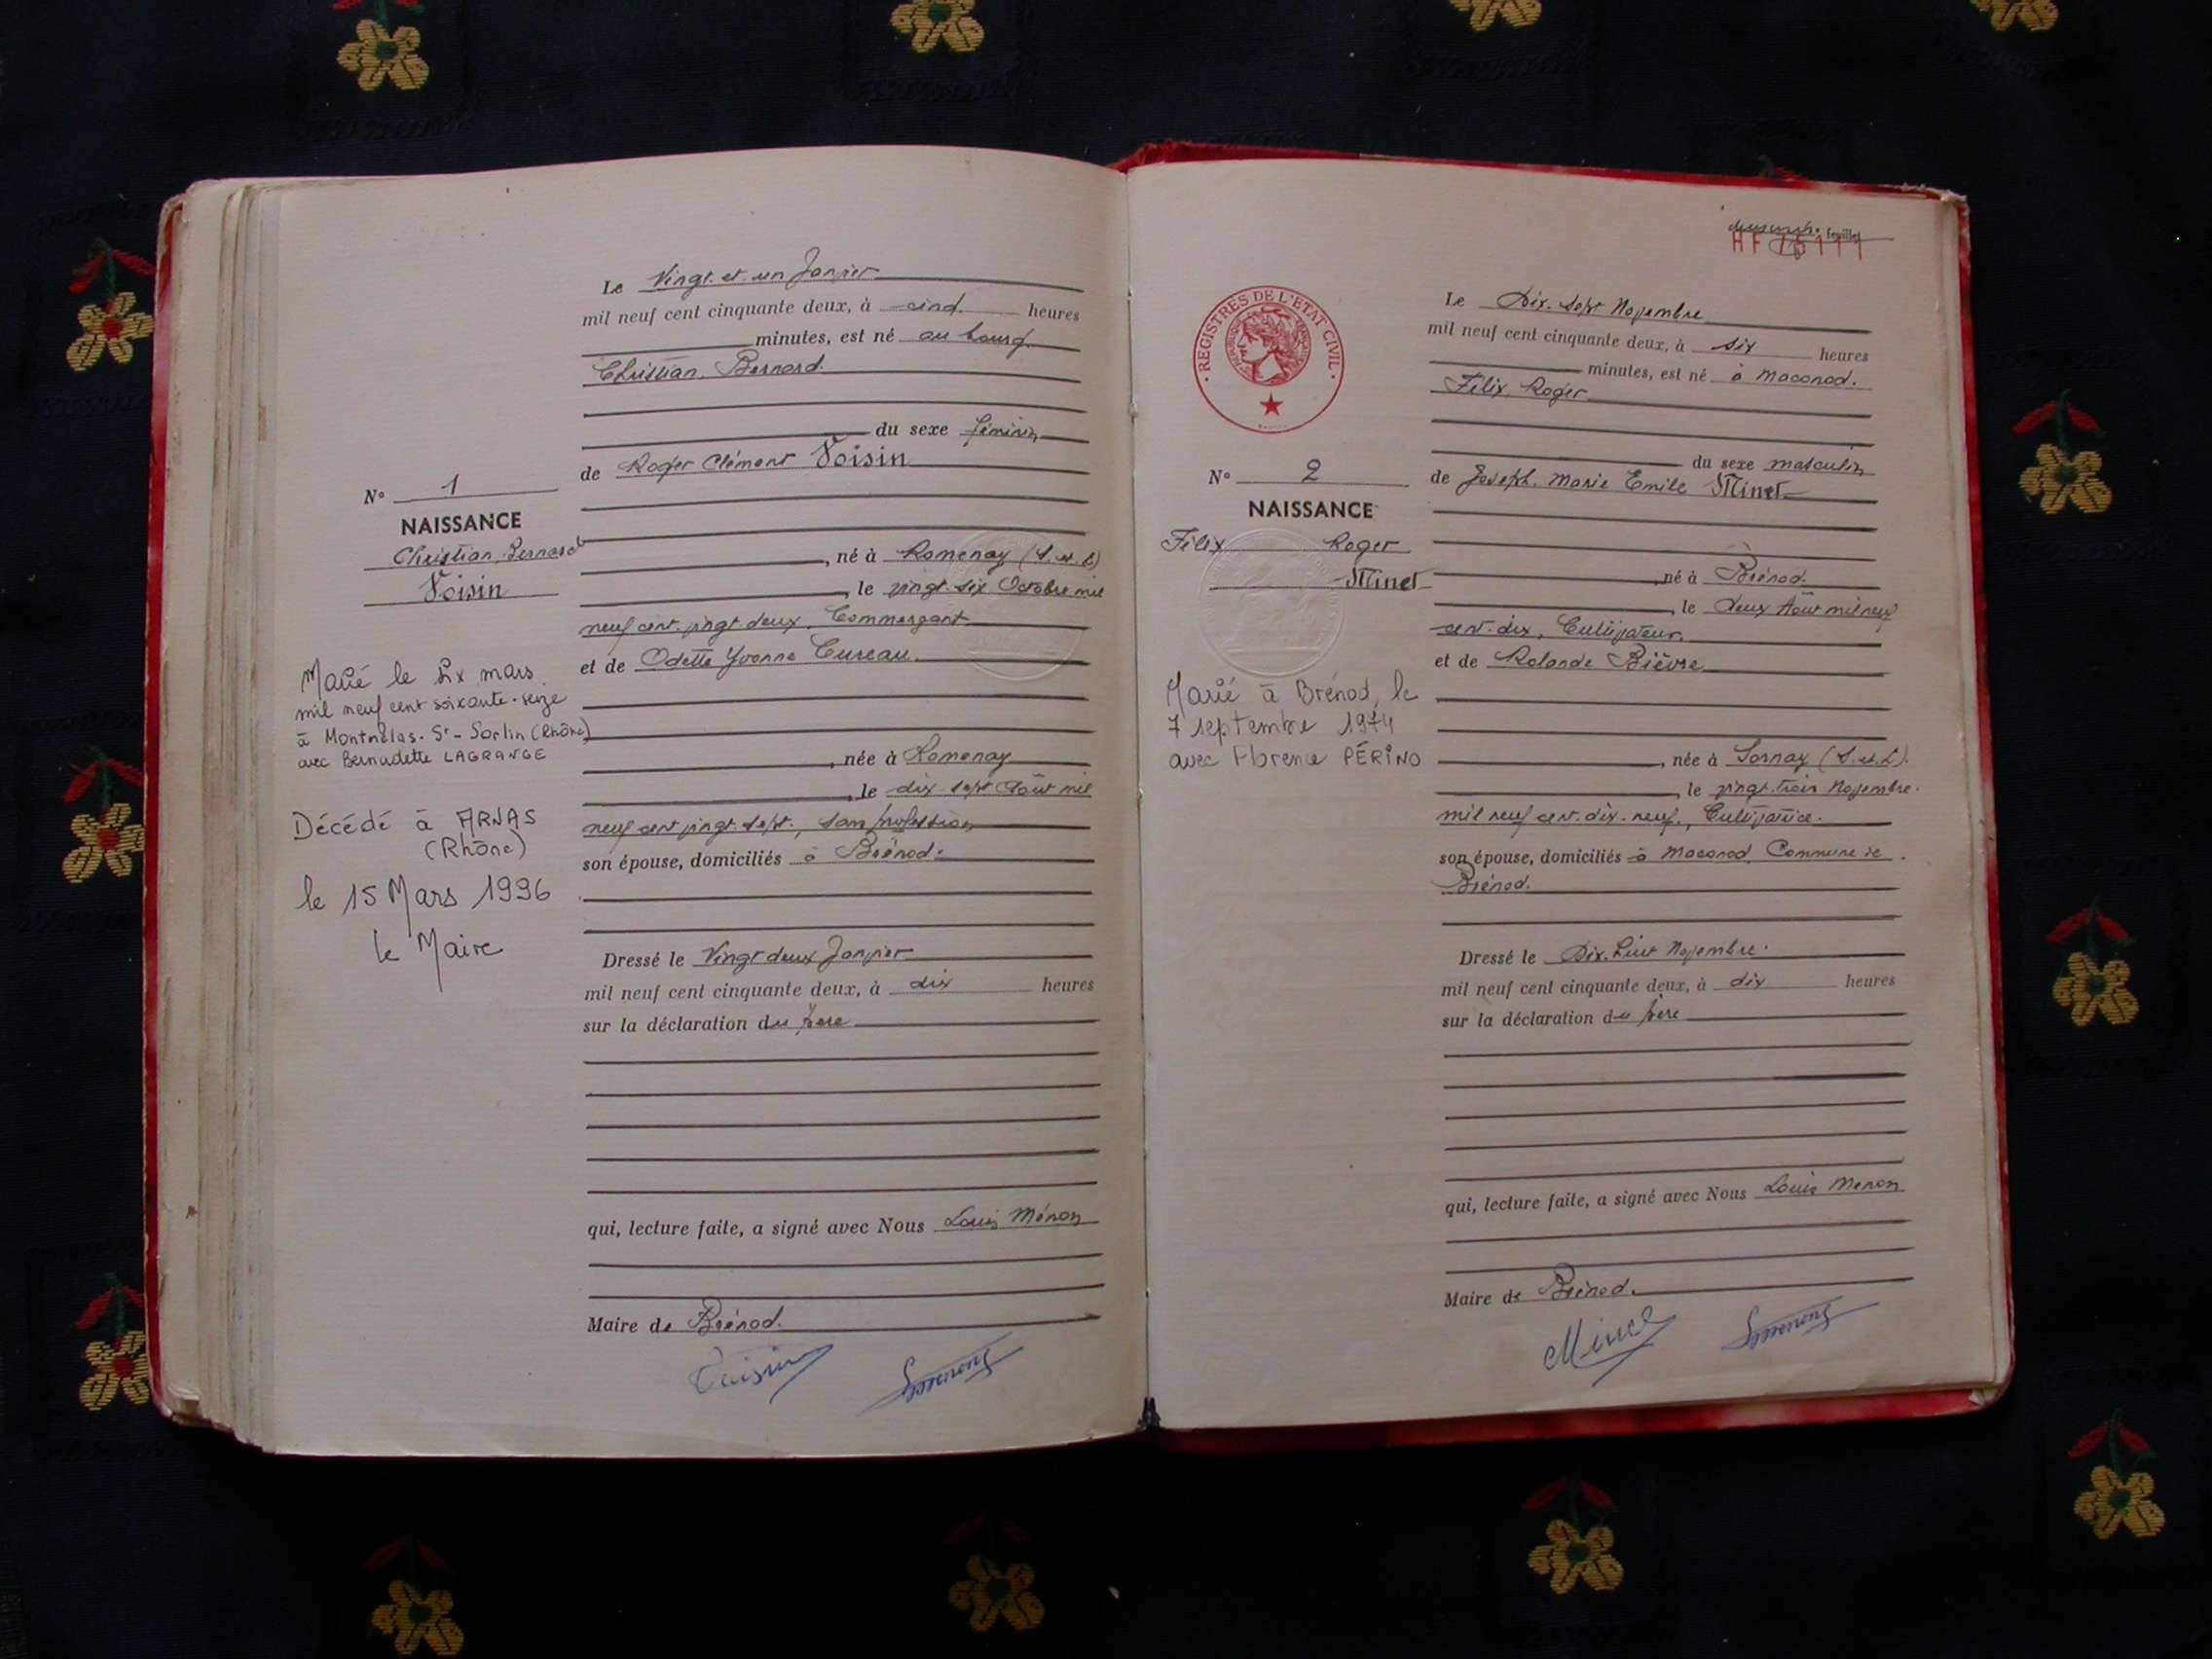 Le Vingt et un Janvier
mil neuf cent cinquante deux, à cinq heures
minutes, est né au bourg
Christian, Bernard.
du sexe féminin
de Roger Clément Voisin
N° 1
NAISSANCE
Christian, Bernard
Voisin
, né à Romenay (S. et L)
, le vingt six Octobre mil
neuf cent vingt deux, Commerçant
et de Odette Yvonne Cureau.
Marié le six mars
mil neuf cent soixante-seize
à Montmelas-St-Sorlin (Rhône)
avec Bernadette LAGRANGE
, née à Romenay
, le dix sept Août mil
neuf cent vingt sept, sans profession
Décédé à ARNAS
(Rhône)
le 15 Mars 1996
le Maire
son épouse, domiciliés à Brénod.
Dressé le Vingt deux Janvier
mil neuf cent cinquante deux, à dix heures
sur la déclaration du père
qui, lecture faite, a signé avec Nous Louis Ménon
Maire de Brénod.
Voisin
feuillet
REGISTRES DE L'ETAT CIVIL
Le Dix-sept Novembre
mil neuf cent cinquante deux, à six heures
minutes, est né à Maconod.
Félix, Roger
du sexe masculin
de Joseph, Marie Emile Minet
N° 2
NAISSANCE
Félix Roger
Minet
, né à Brénod.
, le deux Août mil neuf
cent-dix, Cultivateur.
et de Rolande Bièvre
Marié à Brénod, le
7 septembre 1974
avec Florence PÉRINO
, née à Sornay (S. et L).
, le vingt-trois Novembre
mil neuf cent-dix-neuf, Cultivatrice.
son épouse, domiciliés à Maconod Commune de
Brénod.
Dressé le Dix-huit Novembre
mil neuf cent cinquante deux, à dix heures
sur la déclaration du père
qui, lecture faite, a signé avec Nous Louis Menon
Maire de Brénod.
Minet